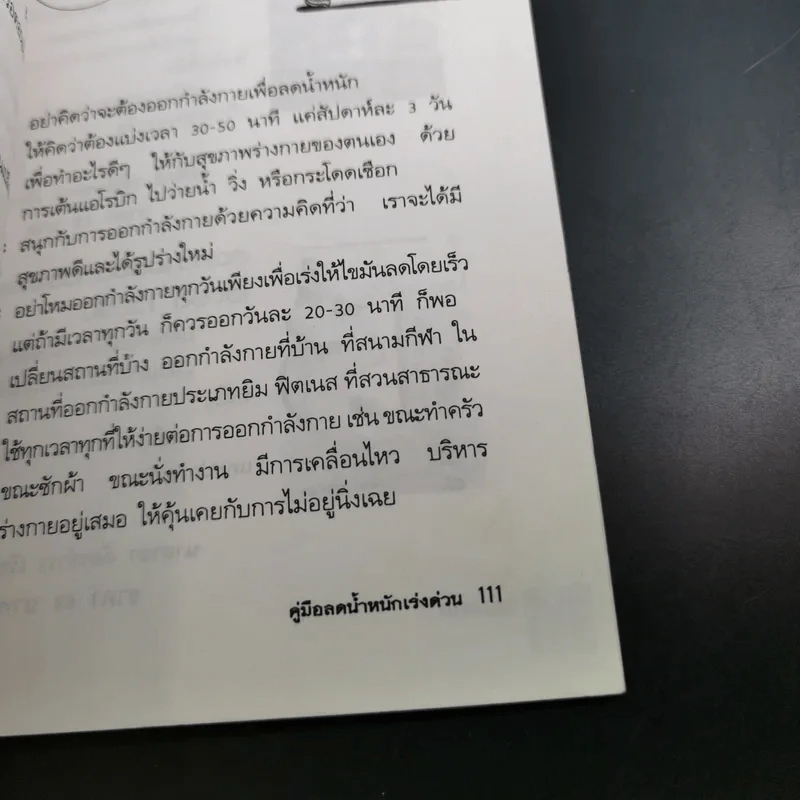 อย่าคิดว่าจะต้องออกกำลังกายเพื่อลดน้ำหนัก
ให้คิดว่าต้องแบ่งเวลา 30-50 นาที แค่สัปดาห์ละ 3 วัน
เพื่อทำอะไรดีๆ ให้กับสุขภาพร่างกายของตนเอง ด้วย
การเต้นแอโรบิก ไปว่ายน้ำ วิ่ง หรือกระโดดเชือก
: สนุกกับการออกกำลังกายด้วยความคิดที่ว่า เราจะได้มี
สุขภาพดีและได้รูปร่างใหม่
: อย่าโหมออกกำลังกายทุกวันเพียงเพื่อเร่งให้ไขมันลดโดยเร็ว
แต่ถ้ามีเวลาทุกวัน ก็ควรออกวันละ 20-30 นาที ก็พอ
เปลี่ยนสถานที่บ้าง ออกกำลังกายที่บ้าน ที่สนามกีฬา ใน
สถานที่ออกกำลังกายประเภทยิม ฟิตเนส ที่สวนสาธารณะ
ใช้ทุกเวลาทุกที่ให้ง่ายต่อการออกกำลังกาย เช่น ขณะทำครัว
ขณะซักผ้า ขณะนั่งทำงาน มีการเคลื่อนไหว บริหาร
ร่างกายอยู่เสมอ ให้คุ้นเคยกับการไม่อยู่นิ่งเฉย
คู่มือลดน้ำหนักเร่งด่วน 111